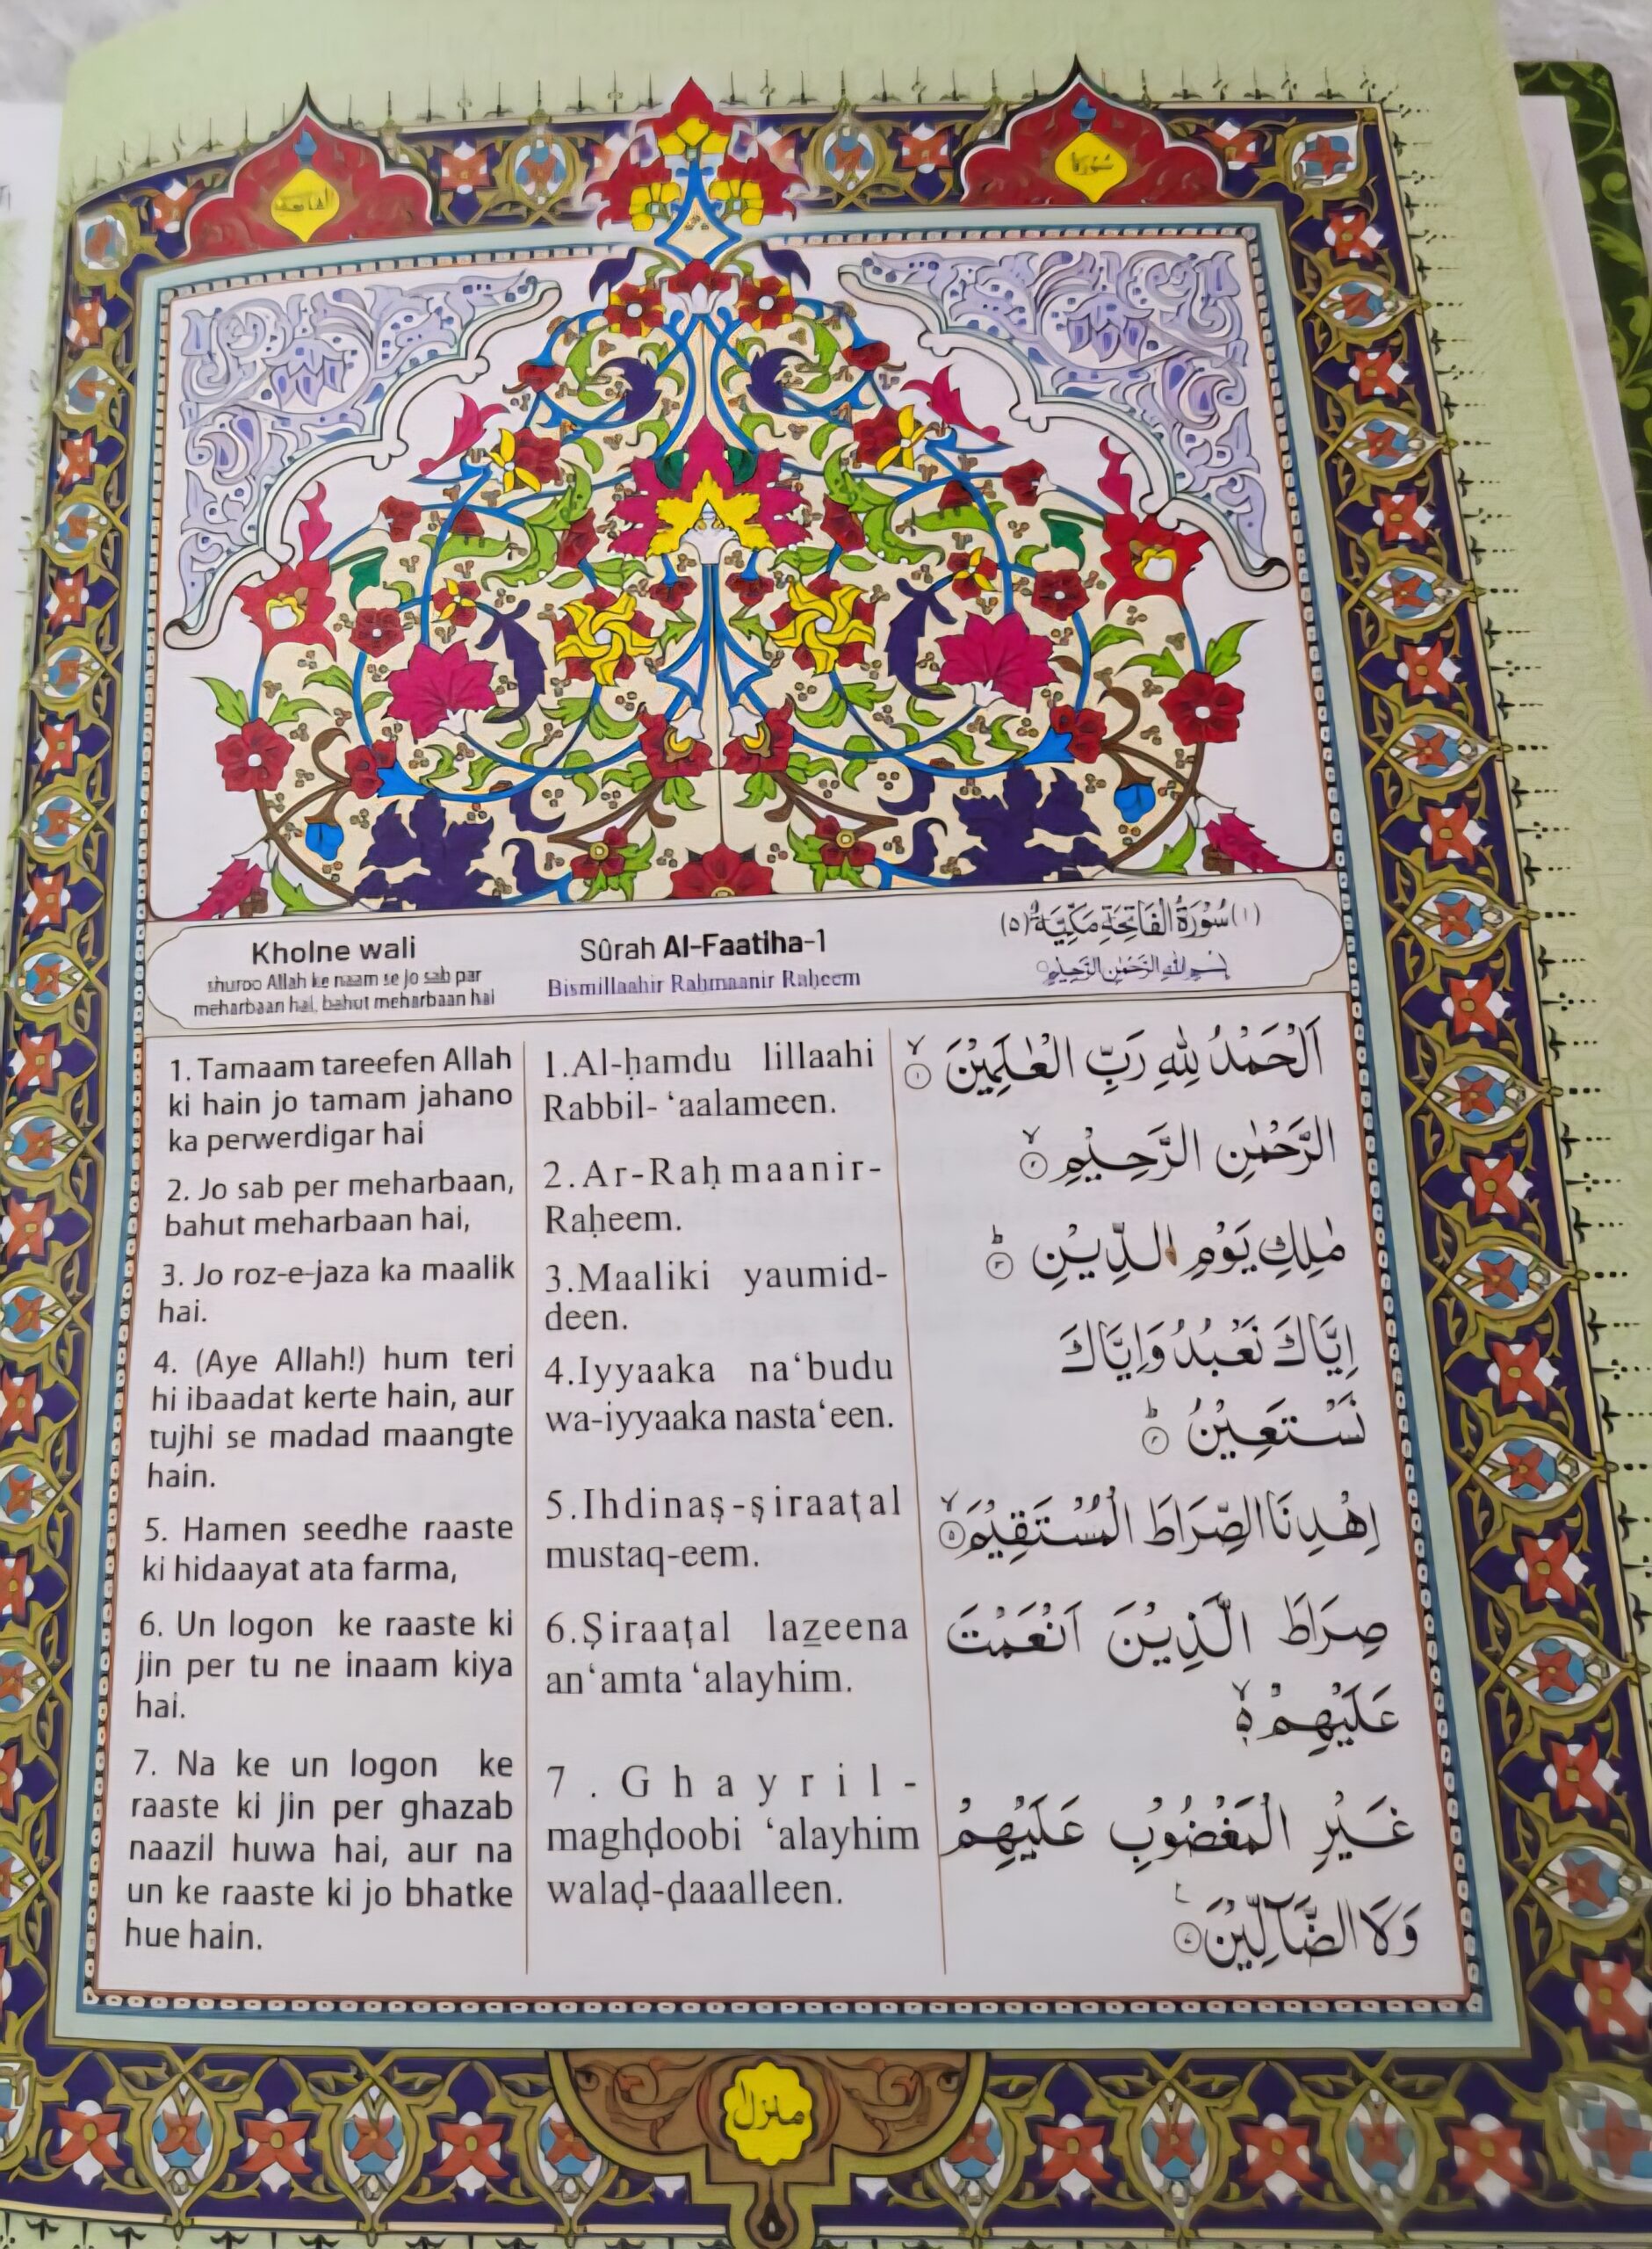 الفاتحة
سورة
Kholne wali
shuroo Allah ke naam se jo sab par
meharbaan hai, bahut meharbaan hai
Sûrah Al-Faatiha-1
Bismillaahir Rahmaanir Raheem
(١) سُوْرَةُ الْفَاتِحَةِ مَكِّيَّةٌ (٥)
بِسْمِ اللّٰهِ الرَّحْمٰنِ الرَّحِيْمِ
1. Tamaam tareefen Allah
ki hain jo tamam jahano
ka perwerdigar hai
2. Jo sab per meharbaan,
bahut meharbaan hai,
3. Jo roz-e-jaza ka maalik
hai.
4. (Aye Allah!) hum teri
hi ibaadat kerte hain, aur
tujhi se madad maangte
hain.
5. Hamen seedhe raaste
ki hidaayat ata farma,
6. Un logon ke raaste ki
jin per tu ne inaam kiya
hai.
7. Na ke un logon ke
raaste ki jin per ghazab
naazil huwa hai, aur na
un ke raaste ki jo bhatke
hue hain.
1.Al-ḥamdu lillaahi
Rabbil- ‘aalameen.
2.Ar-Raḥmaanir-
Raḥeem.
3.Maaliki yaumid-
deen.
4.Iyyaaka na‘budu
wa-iyyaaka nasta‘een.
5.Ihdinaṣ-ṣiraaṭal
mustaq-eem.
6.Ṣiraaṭal lazeena
an‘amta ‘alayhim.
7.Ghayril-
maghḍoobi ‘alayhim
walaḍ-ḍaaalleen.
اَلْحَمْدُ لِلّٰهِ رَبِّ الْعٰلَمِيْنَ ۙ ١
الرَّحْمٰنِ الرَّحِيْمِ ۙ ٢
مٰلِكِ يَوْمِ الدِّيْنِ ؕ ٣
اِيَّاكَ نَعْبُدُ وَاِيَّاكَ
نَسْتَعِيْنُ ؕ ٤
اِهْدِنَا الصِّرَاطَ الْمُسْتَقِيْمَ ۙ ٥
صِرَاطَ الَّذِيْنَ اَنْعَمْتَ
عَلَيْهِمْ ۙ ٥
غَيْرِ الْمَغْضُوْبِ عَلَيْهِمْ
وَلَا الضَّآلِّيْنَ ٧
منزل